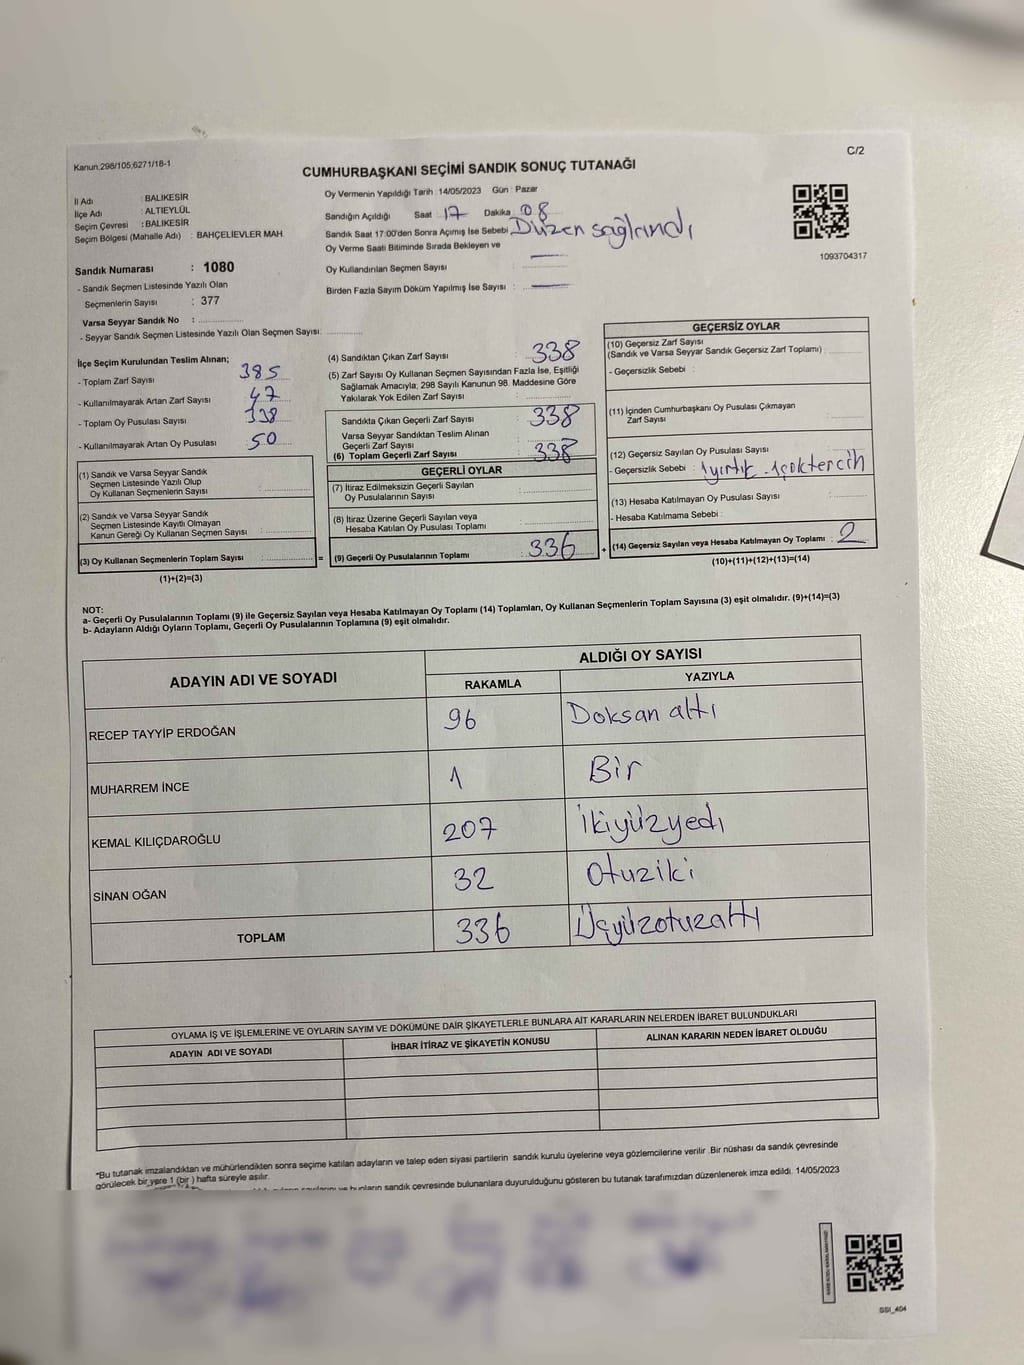 Kanun,298/105,6271/18-1
C/2
CUMHURBAŞKANI SEÇİMİ SANDIK SONUÇ TUTANAĞI
İl Adı : BALIKESİR
İlçe Adı : ALTIEYLÜL
Seçim Çevresi : BALIKESİR
Seçim Bölgesi (Mahalle Adı) : BAHÇELİEVLER MAH.
Sandık Numarası : 1080
- Sandık Seçmen Listesinde Yazılı Olan
Seçmenlerin Sayısı : 377
Varsa Seyyar Sandık No :
- Seyyar Sandık Seçmen Listesinde Yazılı Olan Seçmen Sayısı:
Oy Vermenin Yapıldığı Tarih : 14/05/2023 Gün : Pazar
Sandığın Açıldığı Saat 17 Dakika 08
Sandık Saat 17:00'den Sonra Açımış İse Sebebi Düzen sağlandı
Oy Verme Saati Bitiminde Sırada Bekleyen ve
Oy Kullandırılan Seçmen Sayısı :
Birden Fazla Sayım Döküm Yapılmış İse Sayısı :
1093704317
İlçe Seçim Kurulundan Teslim Alınan;
- Toplam Zarf Sayısı 385
- Kullanılmayarak Artan Zarf Sayısı 47
- Toplam Oy Pusulası Sayısı
- Kullanılmayarak Artan Oy Pusulası 50
(1) Sandık ve Varsa Seyyar Sandık
Seçmen Listesinde Yazılı Olup
Oy Kullanan Seçmenlerin Sayısı :
(2) Sandık ve Varsa Seyyar Sandık
Seçmen Listesinde Kayıtlı Olmayan
Kanun Gereği Oy Kullanan Seçmen Sayısı :
(3) Oy Kullanan Seçmenlerin Toplam Sayısı : =
(1)+(2)=(3)
(4) Sandıktan Çıkan Zarf Sayısı : 338
(5) Zarf Sayısı Oy Kullanan Seçmen Sayısından Fazla İse, Eşitliği
Sağlamak Amacıyla; 298 Sayılı Kanunun 98. Maddesine Göre
Yakılarak Yok Edilen Zarf Sayısı :
Sandıkta Çıkan Geçerli Zarf Sayısı : 338
Varsa Seyyar Sandıktan Teslim Alınan
Geçerli Zarf Sayısı :
(6) Toplam Geçerli Zarf Sayısı : 338
GEÇERLİ OYLAR
(7) İtiraz Edilmeksizin Geçerli Sayılan
Oy Pusulalarının Sayısı :
(8) İtiraz Üzerine Geçerli Sayılan veya
Hesaba Katılan Oy Pusulası Toplamı :
(9) Geçerli Oy Pusulalarının Toplamı : 336 +
GEÇERSİZ OYLAR
(10) Geçersiz Zarf Sayısı
(Sandık ve Varsa Seyyar Sandık Geçersiz Zarf Toplamı) :
- Geçersizlik Sebebi :
(11) İçinden Cumhurbaşkanı Oy Pusulası Çıkmayan
Zarf Sayısı :
(12) Geçersiz Sayılan Oy Pusulası Sayısı :
- Geçersizlik Sebebi : 1yırtık - 1çoktercih
(13) Hesaba Katılmayan Oy Pusulası Sayısı :
- Hesaba Katılmama Sebebi :
(14) Geçersiz Sayılan veya Hesaba Katılmayan Oy Toplamı : 2
(10)+(11)+(12)+(13)=(14)
NOT:
a- Geçerli Oy Pusulalarının Toplamı (9) ile Geçersiz Sayılan veya Hesaba Katılmayan Oy Toplamı (14) Toplamları, Oy Kullanan Seçmenlerin Toplam Sayısına (3) eşit olmalıdır. (9)+(14)=(3)
b- Adayların Aldığı Oyların Toplamı, Geçerli Oy Pusulalarının Toplamına (9) eşit olmalıdır.
ADAYIN ADI VE SOYADI
ALDIĞI OY SAYISI
RAKAMLA YAZIYLA
RECEP TAYYİP ERDOĞAN 96 Doksan altı
MUHARREM İNCE 1 Bir
KEMAL KILIÇDAROĞLU 207 ikiyüzyedi
SİNAN OĞAN 32 Otuziki
TOPLAM 336 Üçyüzotuzaltı
OYLAMA İŞ VE İŞLEMLERİNE VE OYLARIN SAYIM VE DÖKÜMÜNE DAİR ŞİKAYETLERLE BUNLARA AİT KARARLARIN NELERDEN İBARET BULUNDUKLARI
ADAYIN ADI VE SOYADI İHBAR İTİRAZ VE ŞİKAYETİN KONUSU ALINAN KARARIN NEDEN İBARET OLDUĞU
*Bu tutanak imzalandıktan ve mühürlendikten sonra seçime katılan adayların ve talep eden siyasi partilerin sandık kurulu üyelerine veya gözlemcilerine verilir. Bir nüshası da sandık çevresinde
görülecek bir yere 1 (bir) hafta süreyle asılır.
bunların sandık çevresinde bulunanlara duyurulduğunu gösteren bu tutanak tarafımızdan düzenlenerek imza edildi. 14/05/2023
SSI_404